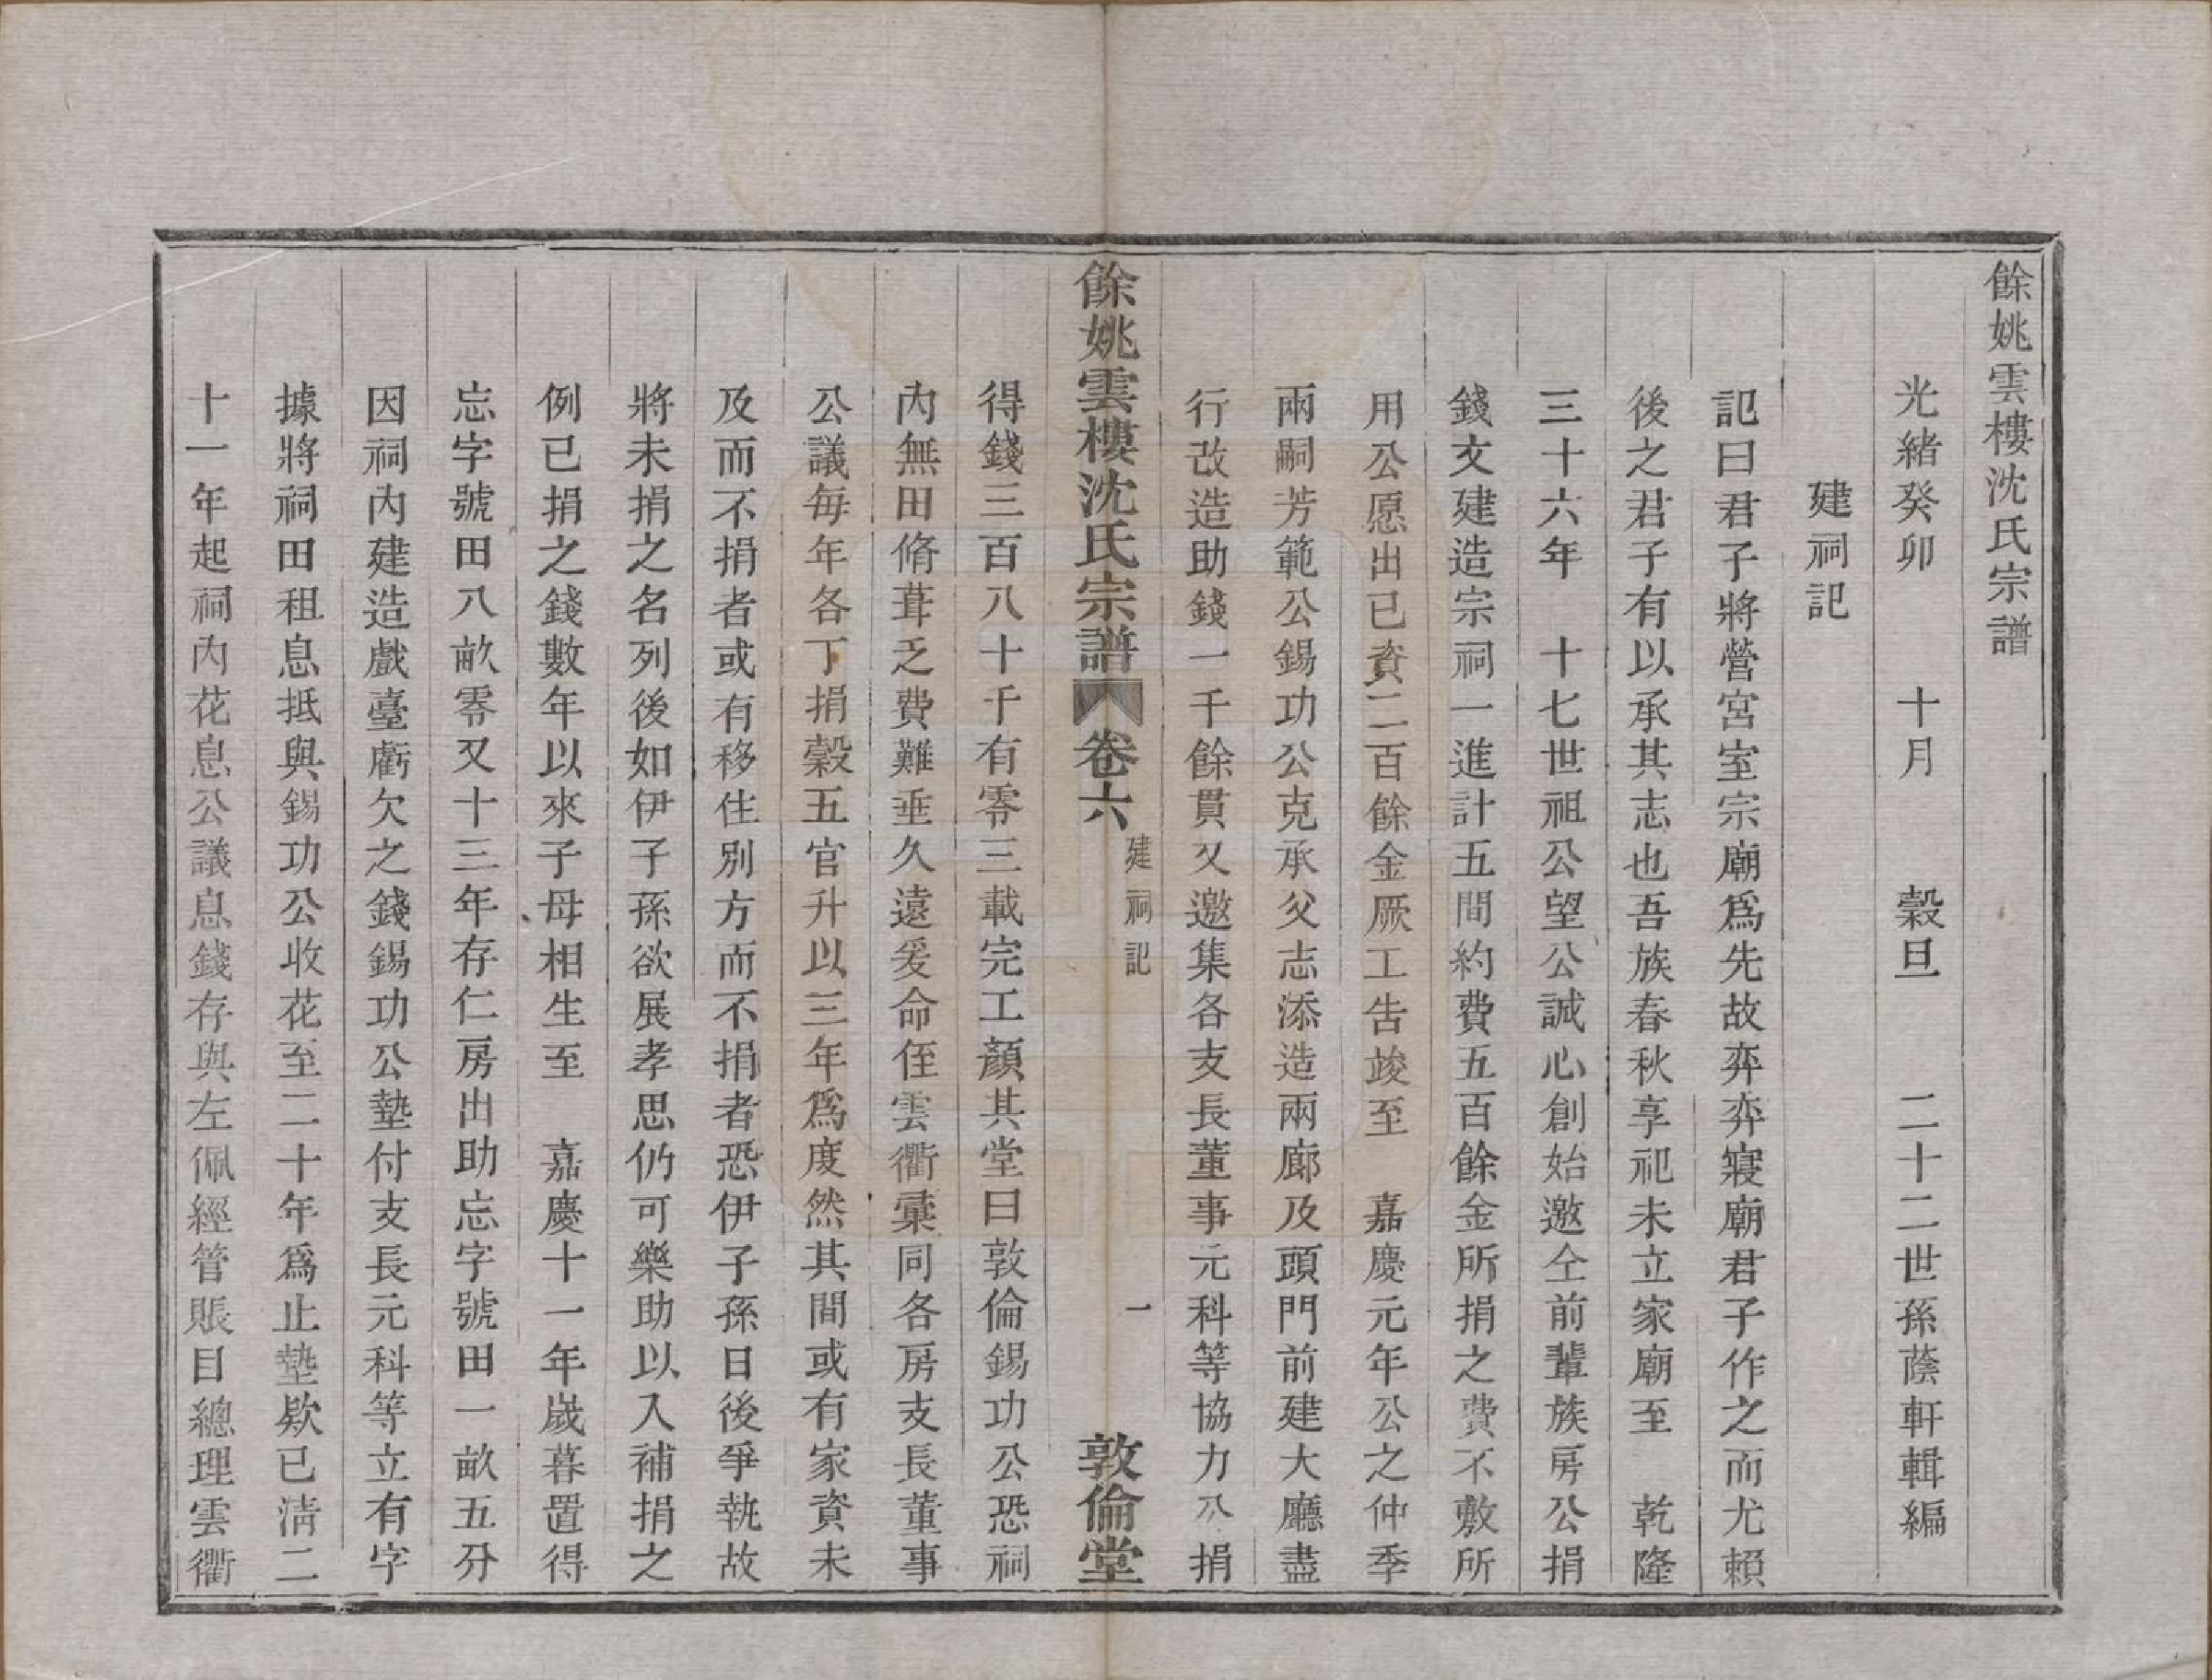 餘姚雲樓沈氏宗譜
光緒癸卯　十月　穀旦　二十二世孫蔭軒輯編
建祠記
記曰君子將營宮室宗廟爲先故弈弈寢廟君子作之而尤賴
後之君子有以承其志也吾族春秋享祀未立家廟至　乾隆
三十六年　十七世祖公望公誠心創始邀仝前輩族房公捐
錢文建造宗祠一進計五間約費五百餘金所捐之費不敷所
用公愿出已資二百餘金厥工告竣至　嘉慶元年公之仲季
兩嗣芳範公錫功公克承父志添造兩廊及頭門前建大廳盡
行改造助錢一千餘貫又邀集各支長董事元科等協力公捐
餘姚雲樓沈氏宗譜　卷六　建祠記　一　敦倫堂
得錢三百八十千有零三載完工顏其堂曰敦倫錫功公恐祠
內無田脩葺乏費難垂久遠爰命侄雲衢彙同各房支長董事
公議每年各丁捐穀五官升以三年爲度然其間或有家資未
及而不捐者或有移住別方而不捐者恐伊子孫日後爭執故
將未捐之名列後如伊子孫欲展孝思仍可樂助以入補捐之
例已捐之錢數年以來子母相生至　嘉慶十一年歲暮置得
忘字號田八畝零又十三年存仁房出助忘字號田一畝五分
因祠內建造戲臺虧欠之錢錫功公墊付支長元科等立有字
據將祠田租息抵與錫功公收花至二十年爲止墊欵已淸二
十一年起祠內花息公議息錢存與左佩經管賬目總理雲衢